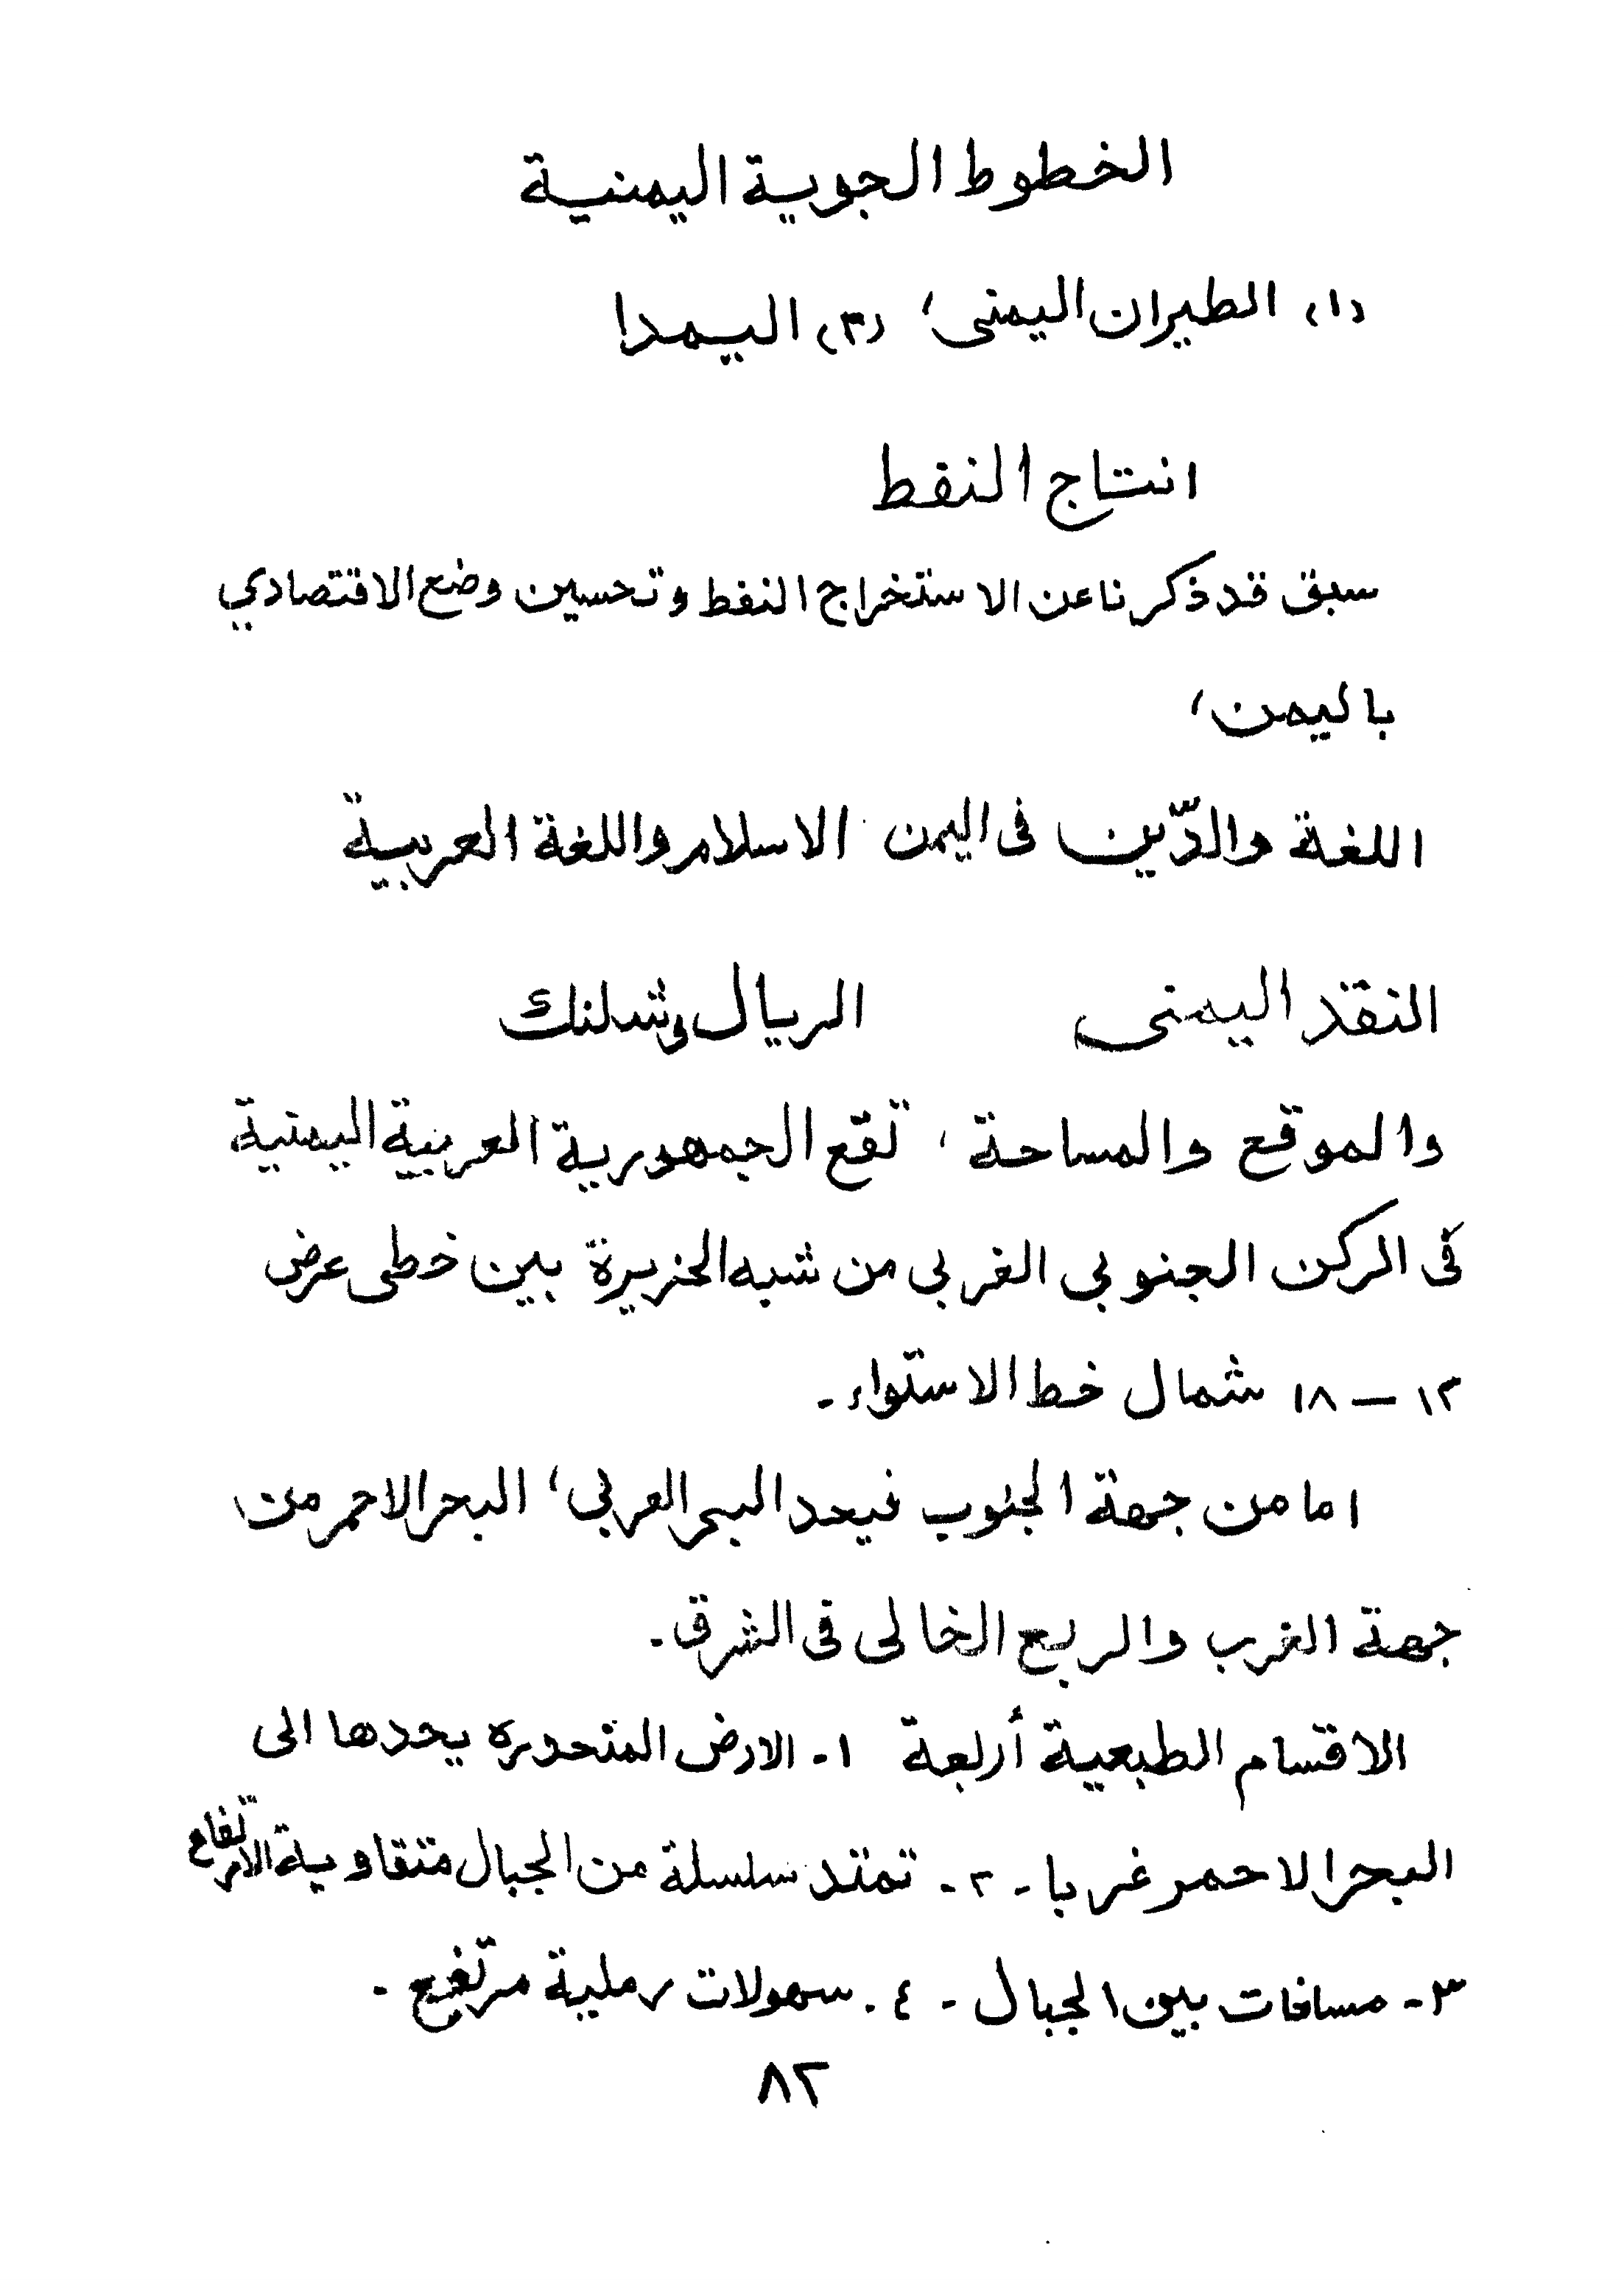 الخطوط الجوية اليمنية
(١) الطيران اليمنى، (٢) اليمدا
انتاج النفط
سبق قد ذكرنا عن الاستخراج النفط وتحسين وضع الاقتصادي
باليمن،
اللغة والدّين فى اليمن الاسلام واللغة العربية
النقد اليمنى الريال وشلنك
والموقع والمساحة، تقع الجمهورية العربية اليمنية
فى الركن الجنوبي الغربي من شبه الجزيرة بين خطى عرض
١٢ – ١٨ شمال خط الاستواء -
اما من جهة الجنوب فيحد البحر العربي، البحر الاحمر من
جهة الغرب والربع الخالى فى الشرق -
الاقسام الطبعية أربعة ١- الارض المنحدره يحدها الى
البحر الاحمر غربا - ٢ - تمتد سلسلة من الجبال متقاوية الارتفاع
٣- مسافات بين الجبال - ٤ - سهولات رملية مرتفع -
٨٢